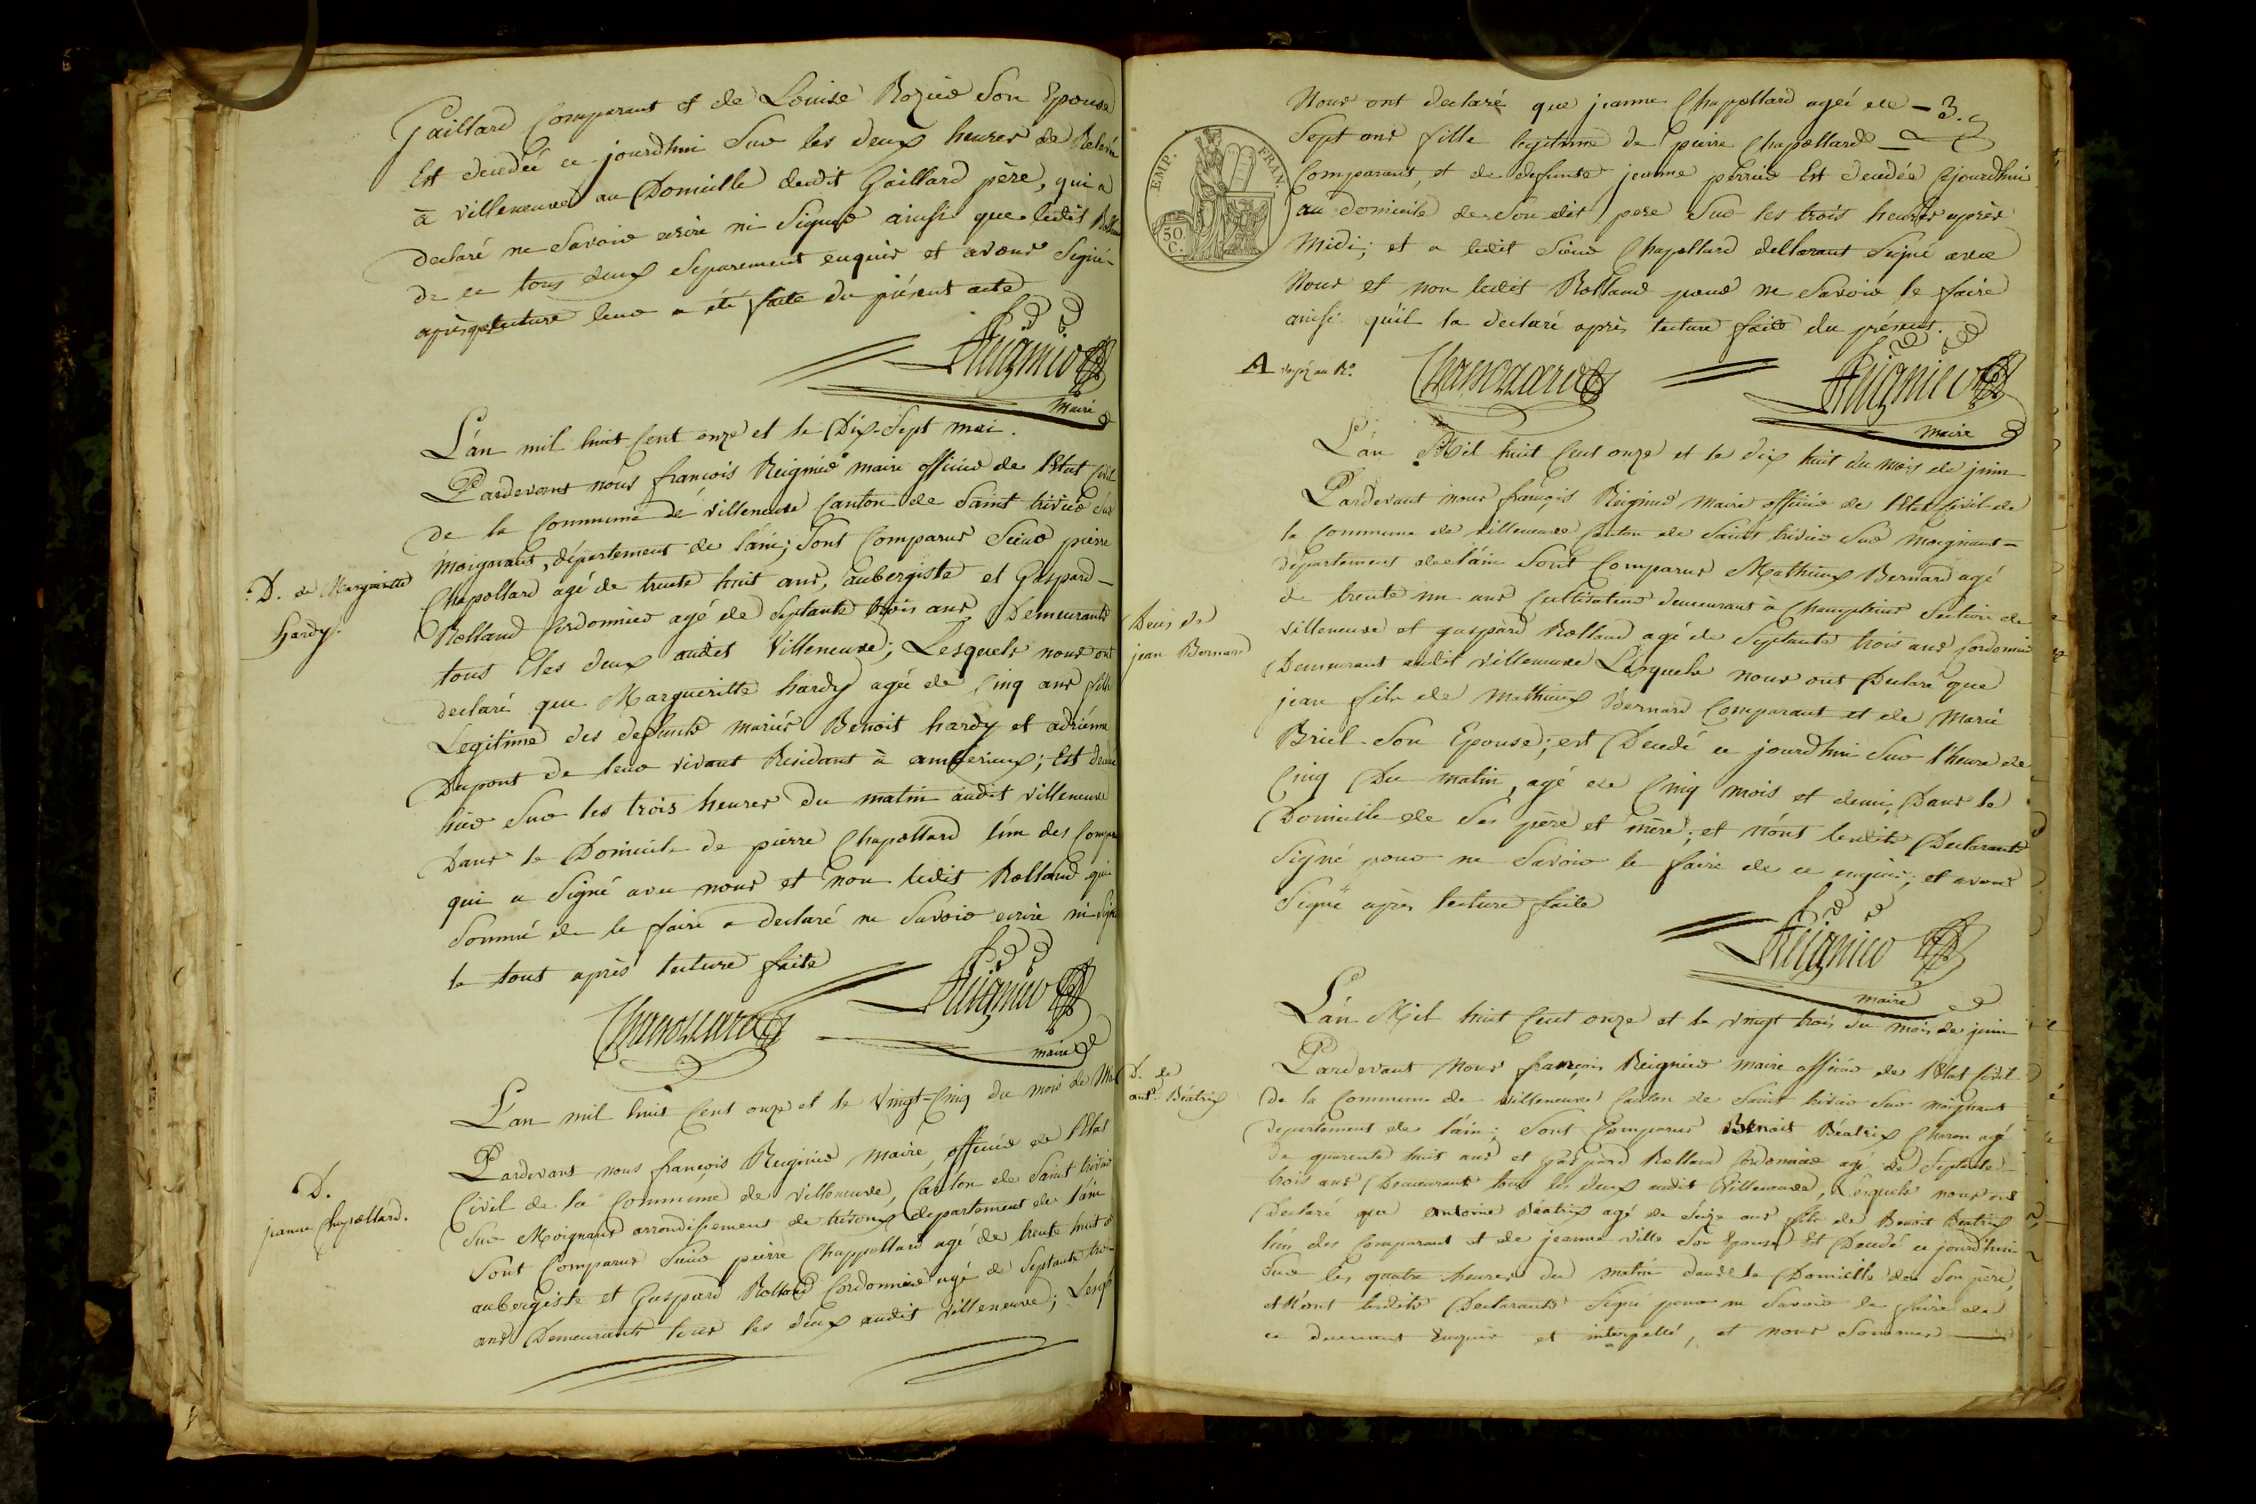 Gaillard Comparant et de Louise Rozier Son Epouse
Est decedéé ce jourdhui Sur les deux heures de Relevée
à villeneuve au Domicille dudit Gaillard père, qui a
declaré ne Savoir ecrire ni Signer ainsi que ledit
de ce tous deux Separement enquis et avons Signé
après que lecture leur a été faite du présent acte
Reignier
maire
L'an mil huit Cent onze et le Dix-Sept mai.
Pardevant nous françois Reignier maire officier de l'Etat Civil
de la Commune de villeneuve Canton de Saint trivier Sur
moignans, département de l'ain; Sont Comparus Sieur pierre
D. de Margueritte
hardy.
Chapollard agé de trente huit ans, aubergiste et Gaspard
Rolland Cordonnier agé de Septante trois ans Demeurants
tous les deux audit Villeneuve; Lesquels nous ont
declaré que Margueritte hardy agée de Cinq ans fille
Legitime des defunts mariés Benoit hardy et adriénne
Dupont de leur vivant Résidant à amberieux; Est decedée
hier Sur les trois heures du matin audit villeneuve
Dans le Domicile de pierre Chapollard l'un des
qui a Signé avec nous et non ledit Rolland qui
Sommé de le faire a declaré ne Savoir ecrire ni Signer
le tout après lecture faite
Reignier
maire
L'an mil huit Cent onze et le Vingt-Cinq du mois de Mai
Pardevant nous françois Reignier maire, officier de l'Etat
D.
jeanne Chapollard.
Civil de la Commune de Villeneuve, Canton de Saint trivier
Sur Moignans arrondissement de trévoux département de l'ain
Sont Comparus Sieur pierre Chappollard agé de trente huit
aubergiste et Gaspard Rolland Cordonnier agé de Septante trois
ans Demeurants tous les deux audit Villeneuve;
Nous ont declaré que jeanne Chappollard ageé de - 3.
Sept ans fille legitime de pierre Chapollard
Comparant, et de defunte jeanne perrier Est decedée Cejourdhui
au domicile de Son dit pere Sur les trois heures après
Midi; et a ledit Sieur Chapollard Signé avec
Nous et non ledit Rolland pour ne Savoir le faire
ainsi qu'il la declaré après lecture faite du présent.
EMP. FRAN.
50
C.
A
Reignier
maire
L'an Mil huit Cent onze et le dix huit du mois de juin
Pardevant nous françois Reignier maire officier de l'Etat Civil de
la Commune de villeneuve Canton de Saint trivier Sur moignans
département de l'ain Sont Comparus Mathieux Bernard agé
de trente un ans Cultivateur demeurant à Section de
Deces de
jean Bernard
villeneuve et gaspard Rolland agé de Septante trois ans Cordonnier
Demeurant audit villeneuve Lesquels nous ont Declaré que
jean fils de Mathieux Bernard Comparant et de Marie
Briel Son Epouse; est Decedé ce jourdhui Sur l'heure de
Cinq Du matin, agé de Cinq mois et demi, Dans le
Domicille de Ses père et mère; et n'ont lesdits Declarants
Signé pour ne Savoir le faire de ce enquis; et avons
Signé après lecture faite
Reignier
maire
L'an Mil huit Cent onze et le Vingt trois du mois de juin
Pardevant Nous françois Reignier maire officier de l'Etat Civil
D. de
ant. Béatrix
De la Commune de villeneuve Canton de Saint trivier Sur moignans
departement de l'ain; Sont Comparus Benoit Béatrix Charon agé
De quarente huit ans et Gaspard Rolland Cordonnier agé de Septante
trois ans Demeurants tous les deux audit Villeneuve, Lesquels nous ont
Declaré que antoine Béatrix agé de Seize ans fils de Benoit Béatrix
l'un des Comparant et de jeanne ville Son Epouse Est Decedé ce jourdhui
Sur les quatre heures du matin dans le Domicille de Son père,
et N'ont lesdits Declarants Signé pour ne Savoir le faire de
ce enquis et interpellé, et nous Sommes